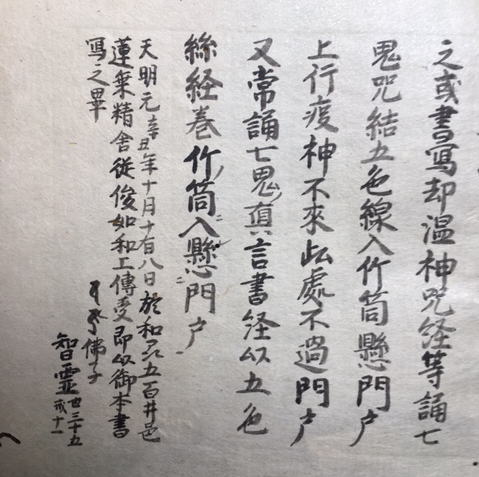 之或書寫却温神咒経等誦七
鬼咒結五色線入竹筒懸門戸
上行疫神不來此處不過門戸
又常誦七鬼真言書経以五色
絲経巻竹筒入懸門戸
天明元辛丑年十月十有八日於和州五百井邑
蓮乗精舎従俊如和上傳受即以御本書
寫之畢
佛子
智霊 世三十五
戒十一